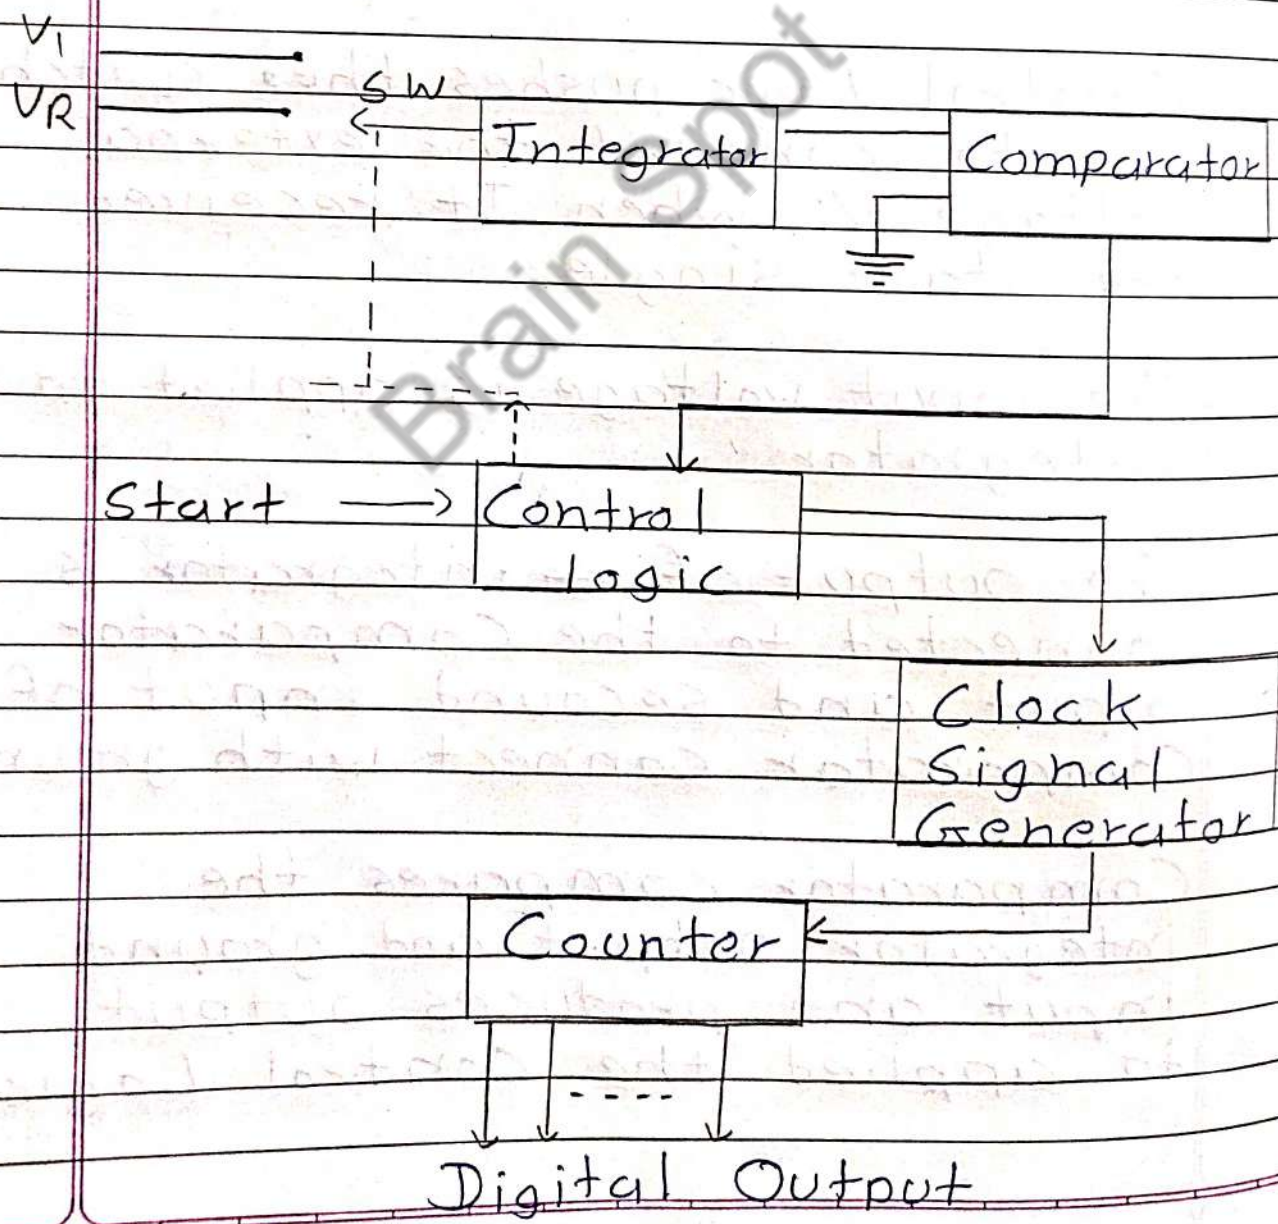 V1
VR
SW
Integrator
Comparator
Brain Spot
Start
Control
Logic
Clock
Signal
Generator
Counter
Digital Output